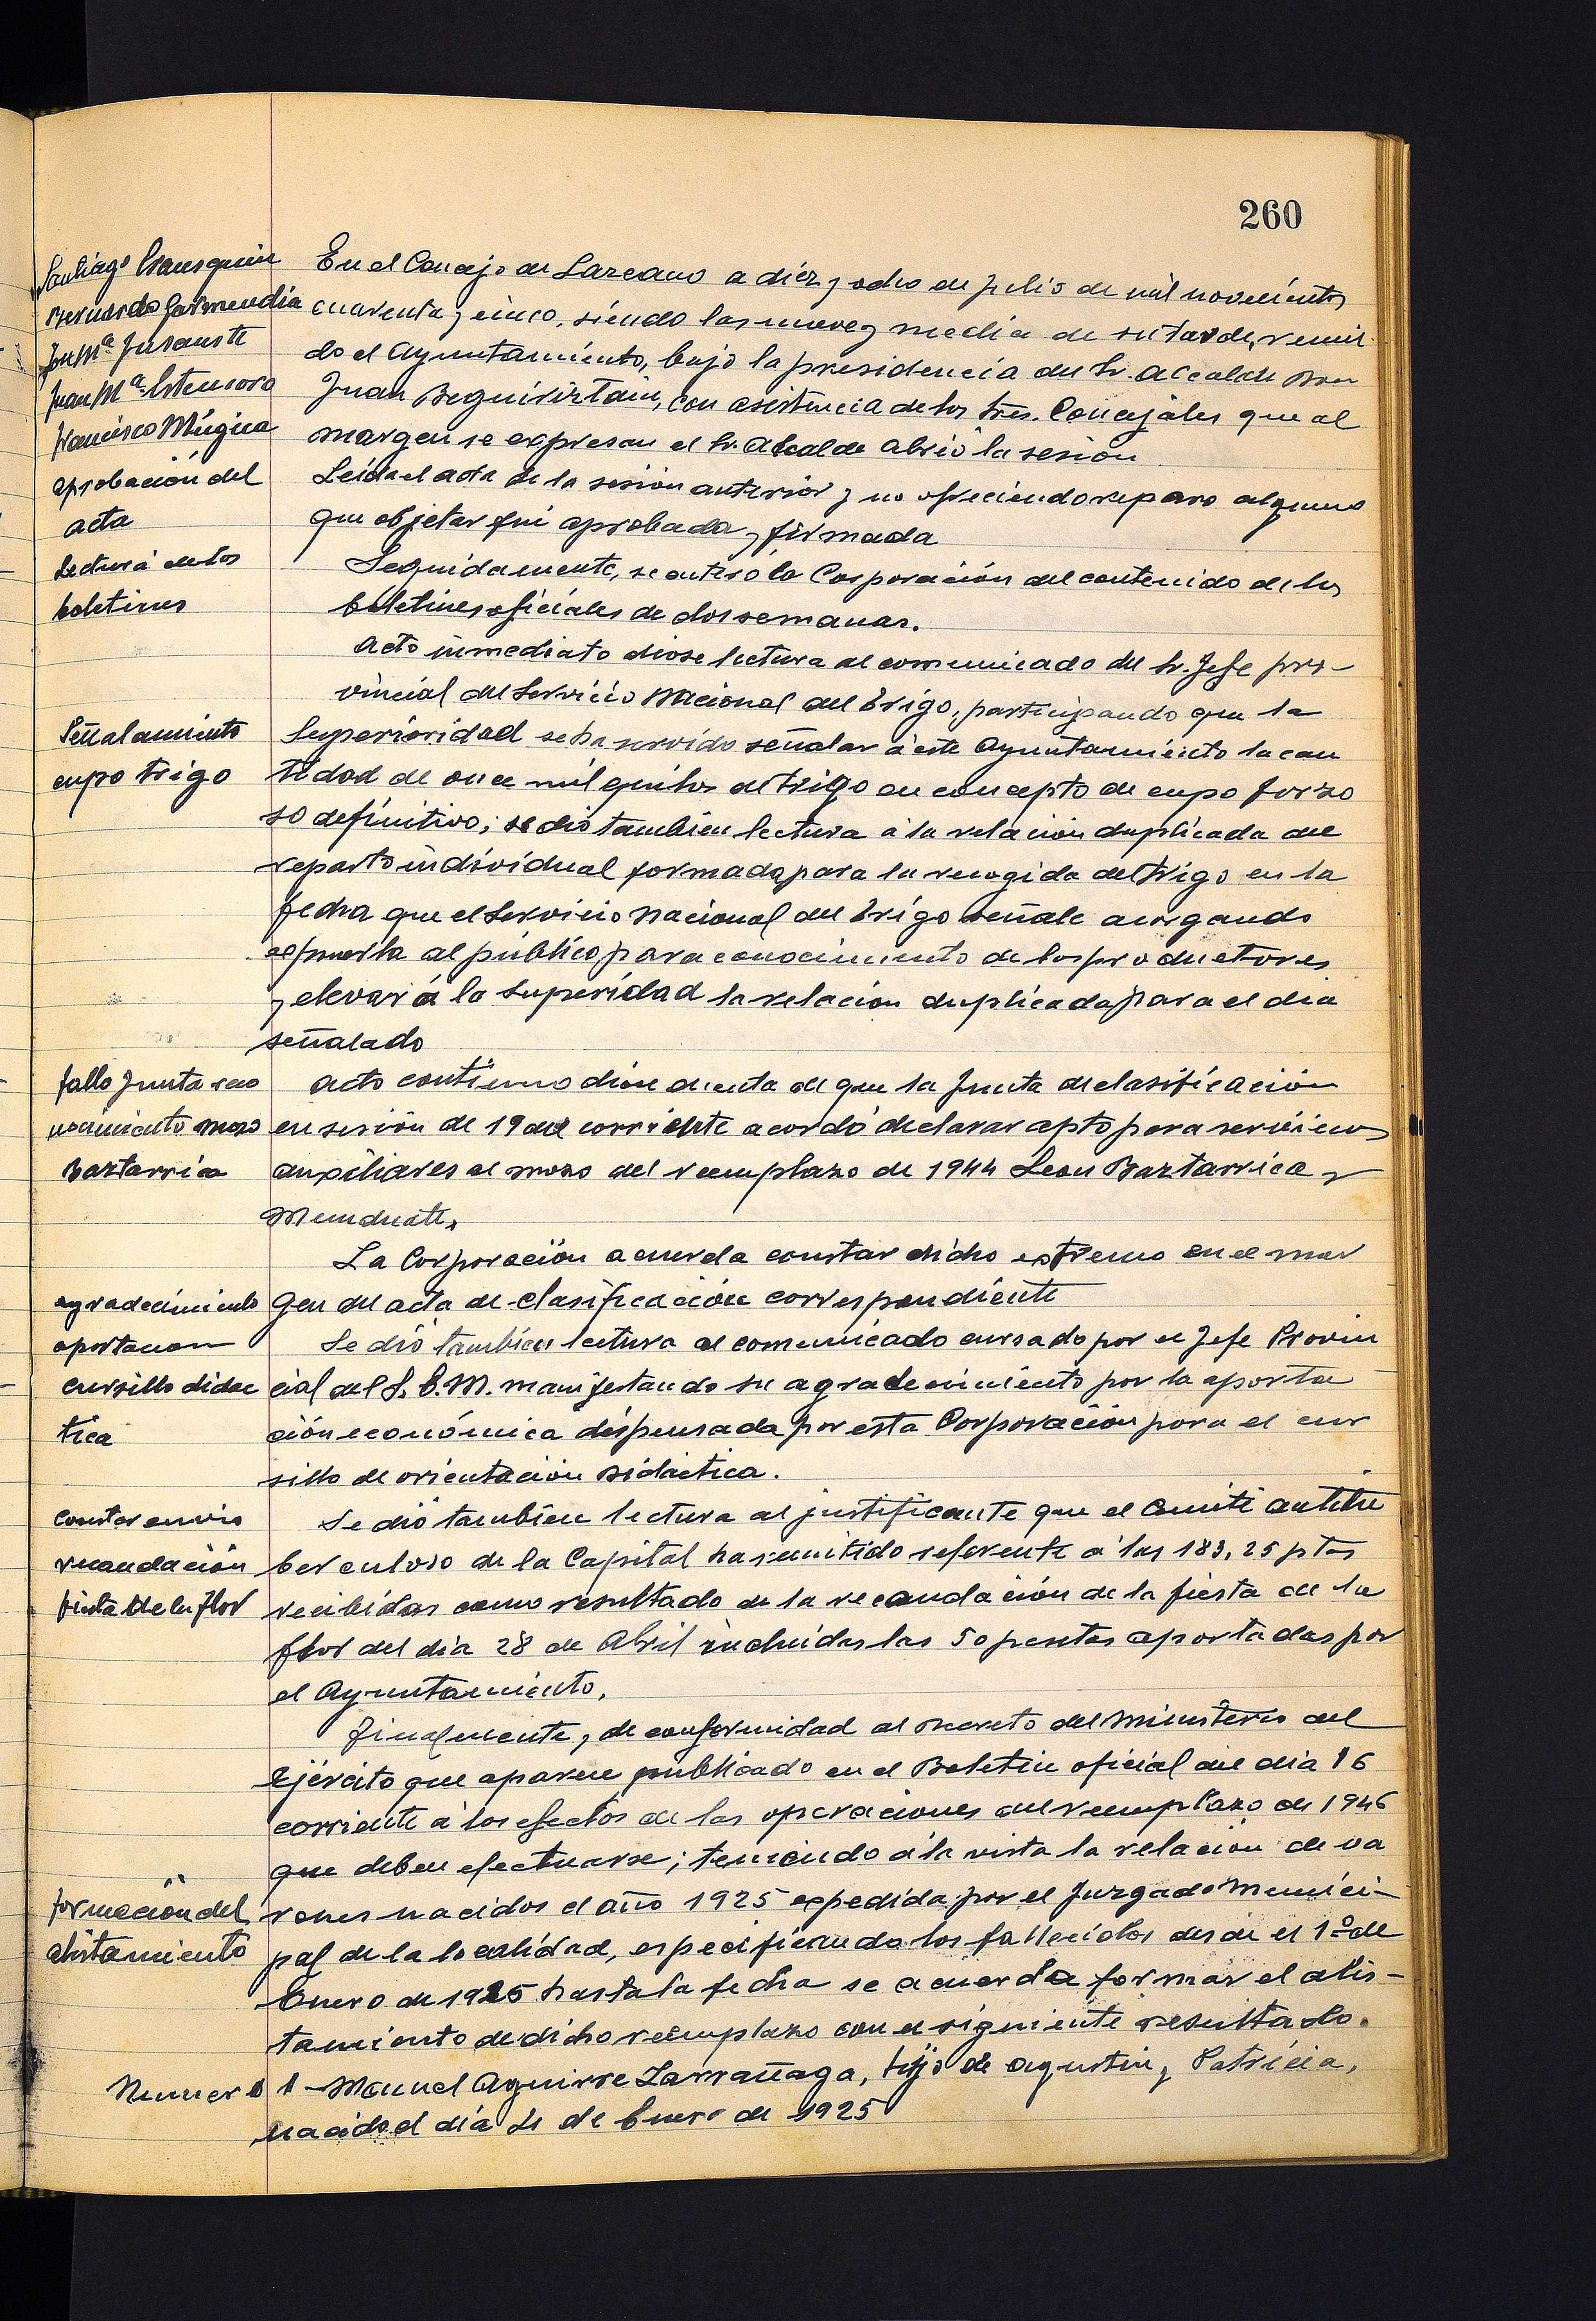 260
Santiago
Bernardo Garmendia
José Mª Insausti
Juan Mª
Francisco Múgica
aprobación del
acta
Lectura de los
boletines
En el Concejo de Lazcano a diez y ocho de Julio de mil novecientos
cuarenta y cinco, siendo las nueve y media de su tarde, reuni
do el Ayuntamiento, bajo la presidencia del Sr. Alcalde Don
Juan Beguiristain, con asistencia de los Sres. Concejales que al
margen se expresan el Sr. Alcalde abrió la sesión
Leida el acta de la sesión anterior y no ofreciendo reparo alguno
que objetar fué aprobada y firmada
Seguidamente, se enteró la Corporación del contenido de los
boletines oficiales de dos semanas.
Acto inmediato diose lectura al comunicado del Sr. Jefe pro-
vincial del Servicio Nacional del Trigo, participando que la
Señalamiento
cupo trigo
Superioridad se ha servido señalar á este Ayuntamiento la can
tidad de once mil quilos de trigo en concepto de cupo forzo
so definitivo; se dio tambien lectura á la relación duplicada del
reparto individual formada para la recogida del trigo en la
fecha que el Servicio Nacional del Trigo señale acorgando
esponerla al público para conocimiento de los productores
y elevar á la Superidad la relación duplicada para el dia
señalado
fallo Junta reco
nocimiento mozo
Baztarrica
acto continuo diose cuenta de que la Junta de clasificación
en sesión de 19 del corriente acordó declarar apto para servicios
auxiliares al mozo del reemplazo de 1944 Leon Baztarrica y
Munduate.
La Corporación acuerda constar dicho extremo en el mar
gen del acta de clasificación correspondiente
agradecimiento
aportacion
cursillo didac
tica
Se dió tambien lectura al comunicado cursado por el Jefe Provin
cial del S. E. M. manifestando su agradecimiento por la aporta
ción económica dispensada por esta Corporación para el cur
sillo de orientación didactica.
Constar envio
recaudación
fiesta de la flor
Se dió tambien lectura al justificante que el Comité antitu
berculoso de la Capital ha remitido referente á las 183,25 ptas
recibidas como resultado de la recaudación de la fiesta de la
flor del dia 28 de Abril incluidas las 50 pesetas aportadas por
el Ayuntamiento.
Finalmente, de conformidad al Decreto del Ministerio del
Ejército que aparece publicado en el Boletin oficial del dia 16
corriente á los efectos de las operaciones del reemplazo de 1946
que deben efectuarse; teniendo á la vista la relación de va
formación del
alistamiento
rones nacidos el año 1925 expedida por el Juzgado Munici-
pal de la localidad, especificando los fallecidos desde el 1º de
Enero de 1925 hasta la fecha se acuerda formar el alis-
tamiento de dicho reemplazo con el siguiente resultado.
Numero 1 - Manuel Aguirre Larrañaga, hijo de Agustin y Patricia,
nacido el día 21 de Enero de 1925